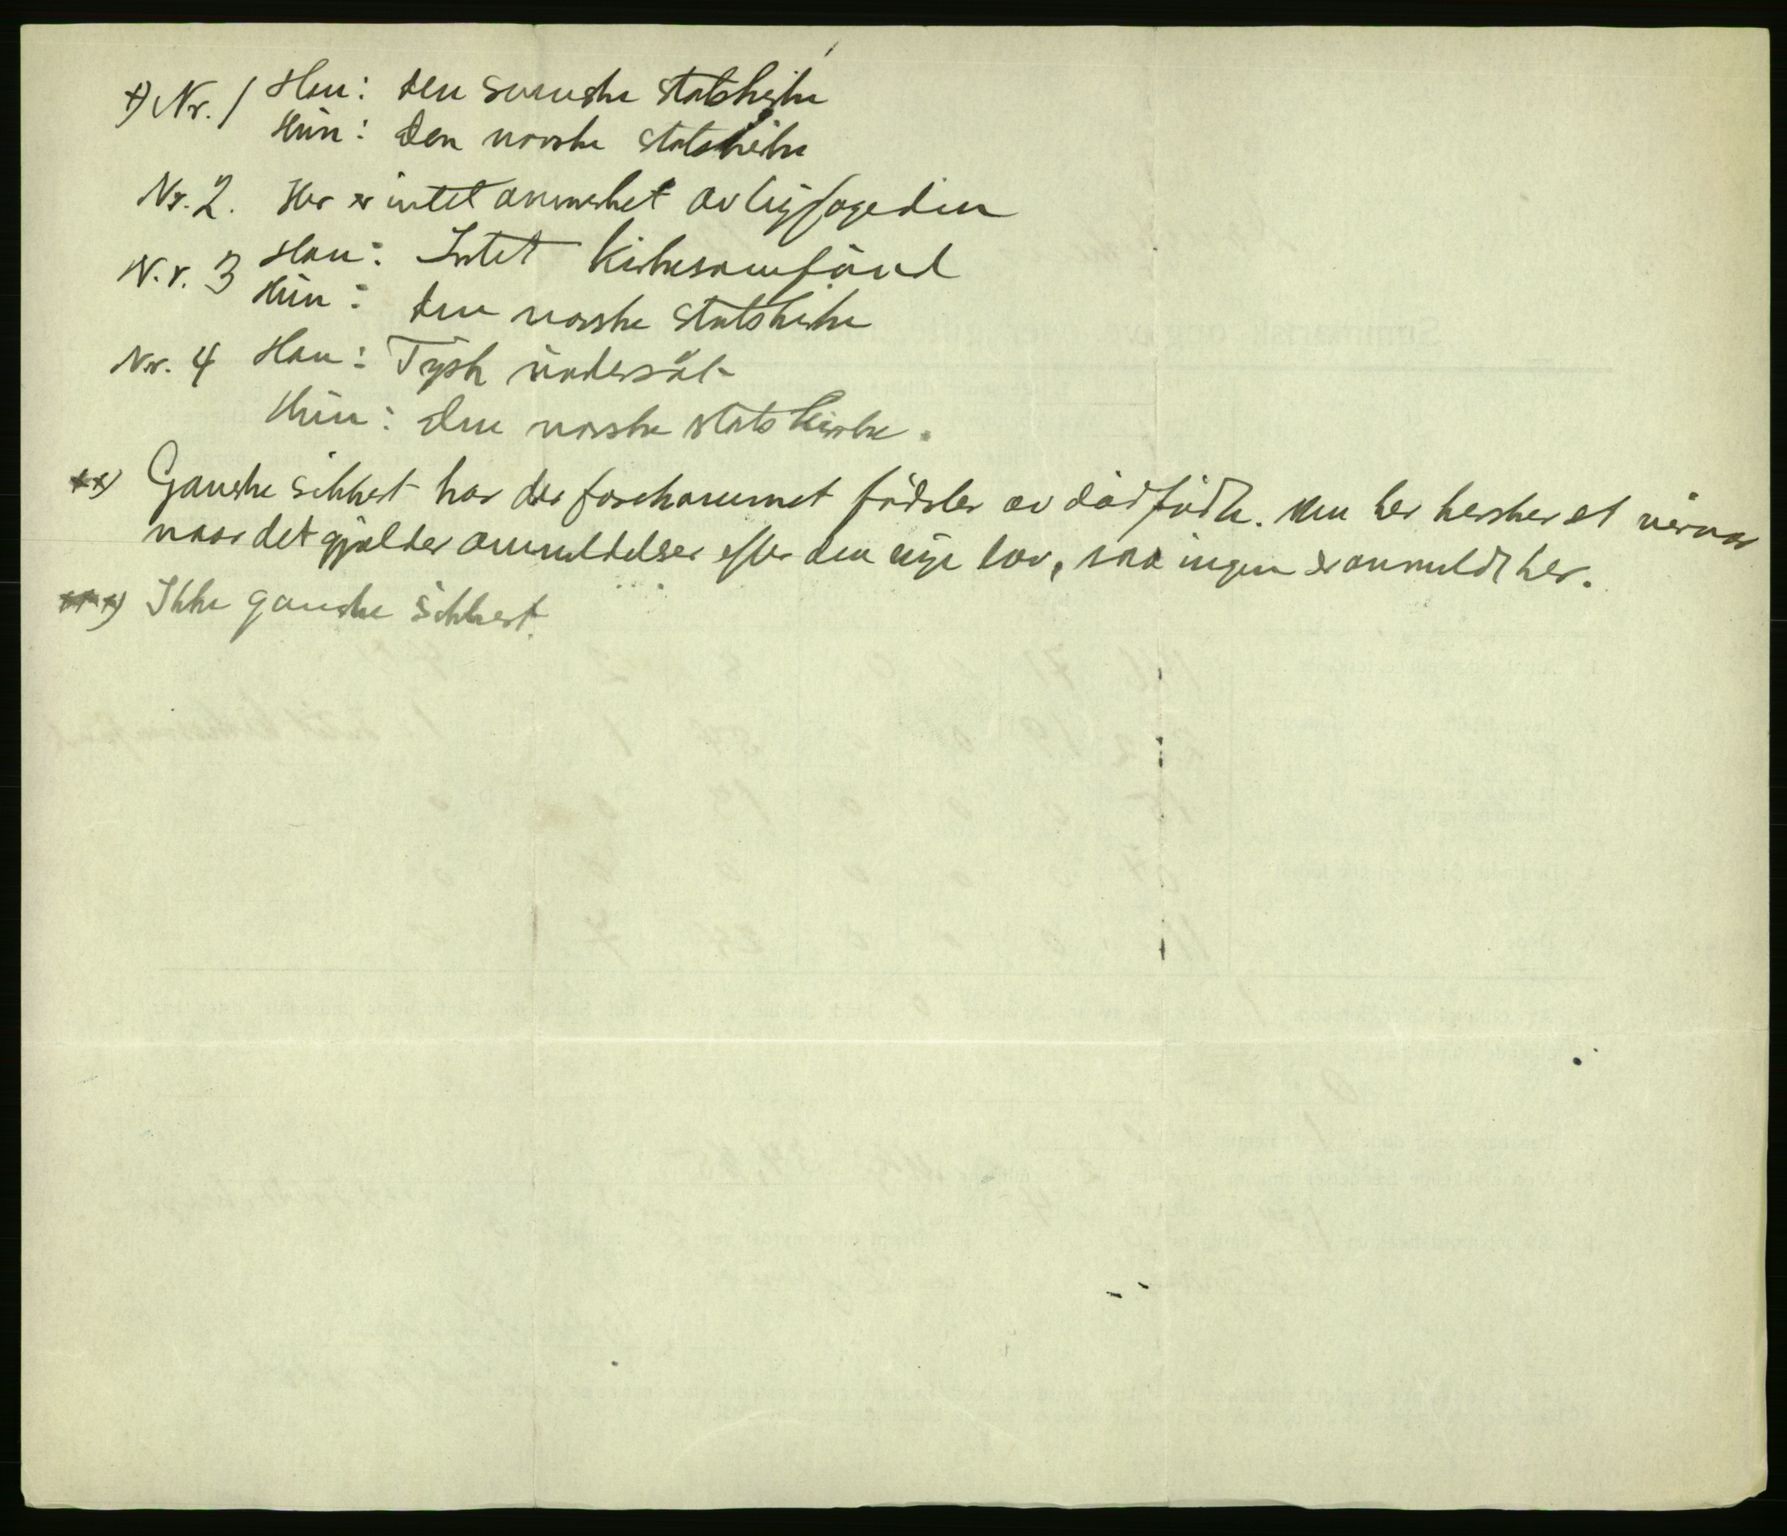 x) Nr. 1 Han: den svenske statskirke
Hun: den norske statskirke
Nr. 2. Her er intet anmerket av byfogeden
N.r. 3 Han: Intet kirkesamfund
Hun: den norske statskirke
Nr. 4 Han: Tysk undersåt
Hun: den norske statskirke.
xx) Ganske sikkert har der forekommet fødsler av dødfødte. Men her hersker et
naar det gjælder anmeldelser efter den nye lov, saa ingen er anmeldt her.
xxx) Ikke ganske sikkert.